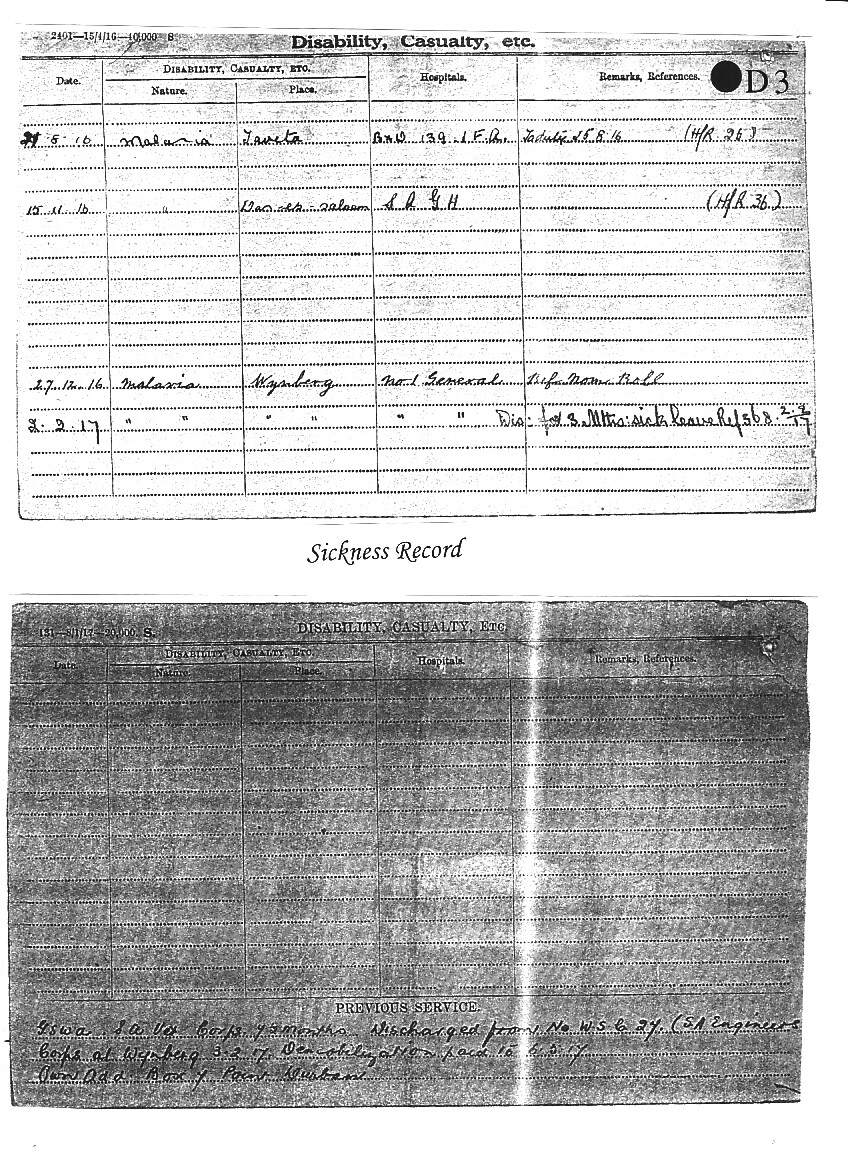 2401—15/4/16—40,000 S
Disability, Casualty, etc.
Date. DISABILITY, CASUALTY, ETC. Hospitals. Remarks, References. D3
Nature. Place.
5 16 Malaria Taveta B & D 139 I.F.A. To duty 25 8 16 (H/R 26)
15 11 16 " Dar-es-salaam S A G H (H/R 36)
27.12.16 Malaria Wynberg No. 1 General Ref. Nom. Roll
2. 2. 17 " " " " " " Dis- for 3 Mths: sick leave Ref 568.
Sickness Record
131—8/1/17—20,000. S.
DISABILITY, CASUALTY, ETC.
Date. DISABILITY, CASUALTY, ETC. Hospitals. Remarks, References.
Nature. Place.
PREVIOUS SERVICE.
GSWA S A Vet Corps. months. Discharged from No. W.S.C. 27. (SA Engineers
Corps at Wynberg 3.2.17. Demobilization paid to 6.5.17.
Add Box Point Durban